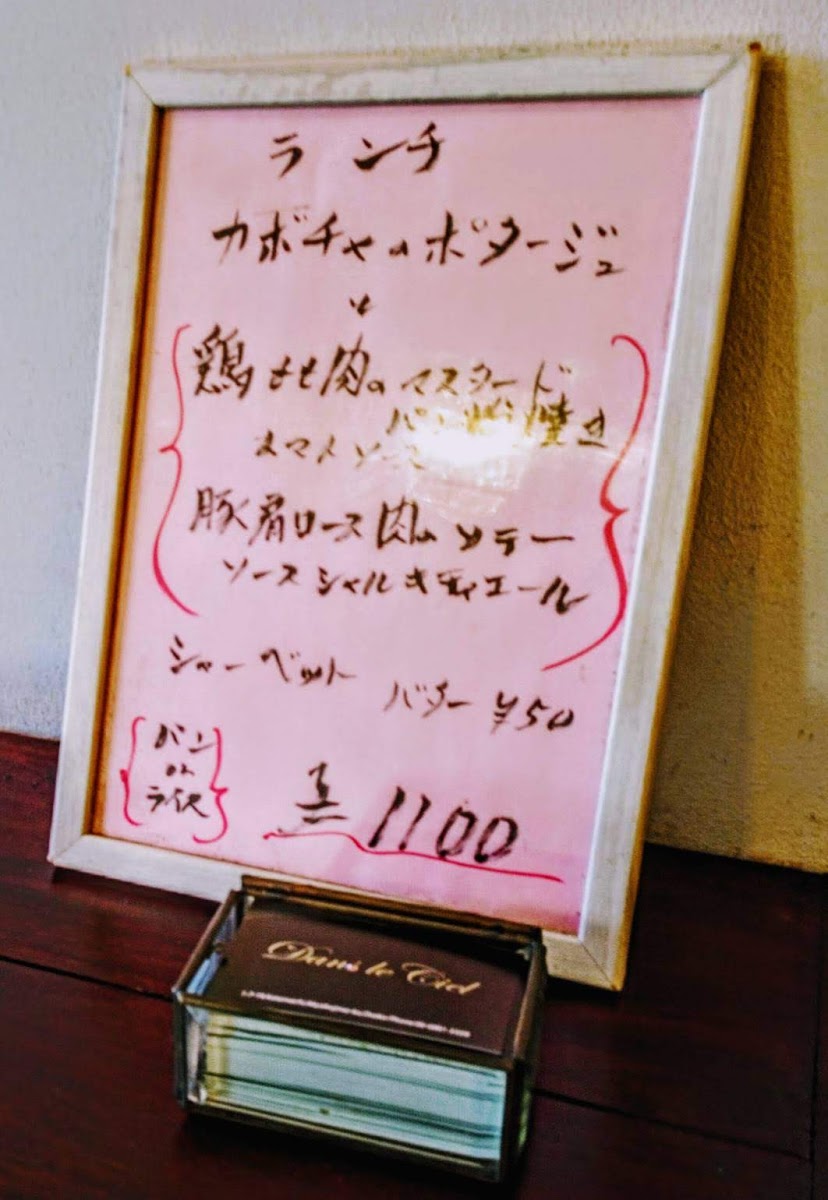 ランチ
カボチャのポタージュ
鶏もも肉のマスタード
パン粉焼き
トマトソース
豚肩ロース肉のソテー
ソースシャルキティエール
シャーベット
バター ¥50
パン
or
ライス
¥1100
Dans le Ciel